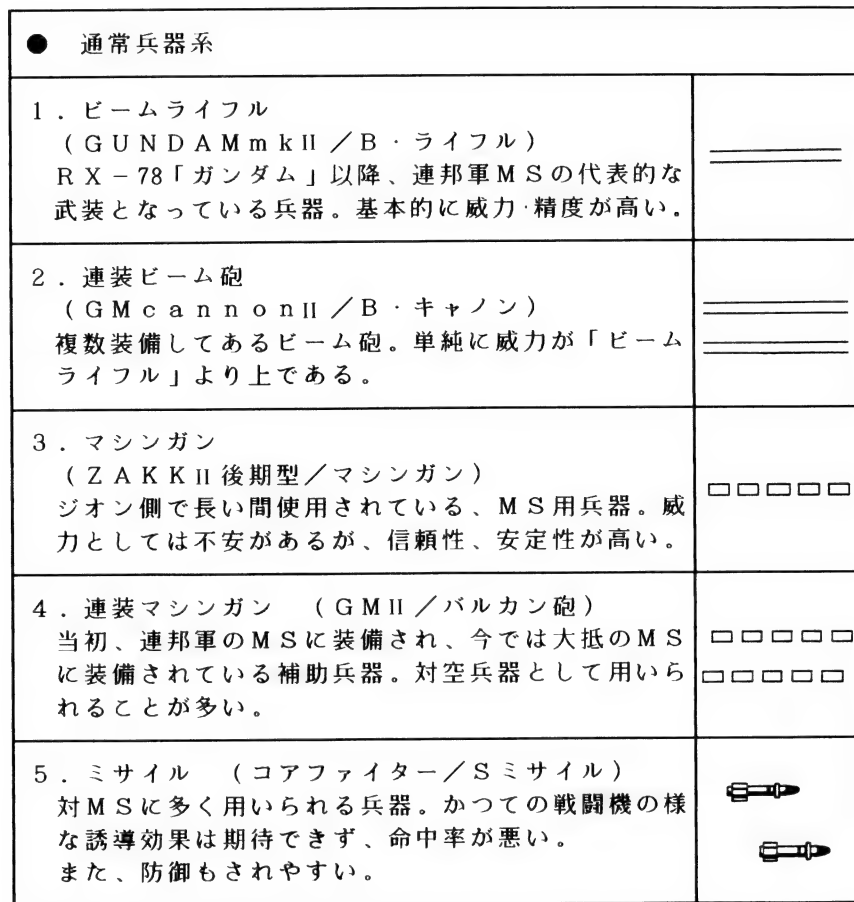 ● 通常兵器系
1．ビームライフル
（GUNDAMmkII／B・ライフル）
RX－78「ガンダム」以降、連邦軍MSの代表的な
武装となっている兵器。基本的に威力・精度が高い。
2．連装ビーム砲
（GMcannonII／B・キャノン）
複数装備してあるビーム砲。単純に威力が「ビーム
ライフル」より上である。
3．マシンガン
（ZAKKII後期型／マシンガン）
ジオン側で長い間使用されている、MS用兵器。威
力としては不安があるが、信頼性、安定性が高い。
4．連装マシンガン　（GMII／バルカン砲）
当初、連邦軍のMSに装備され、今では大抵のMS
に装備されている補助兵器。対空兵器として用いら
れることが多い。
5．ミサイル　（コアファイター／Sミサイル）
対MSに多く用いられる兵器。かつての戦闘機の様
な誘導効果は期待できず、命中率が悪い。
また、防御もされやすい。